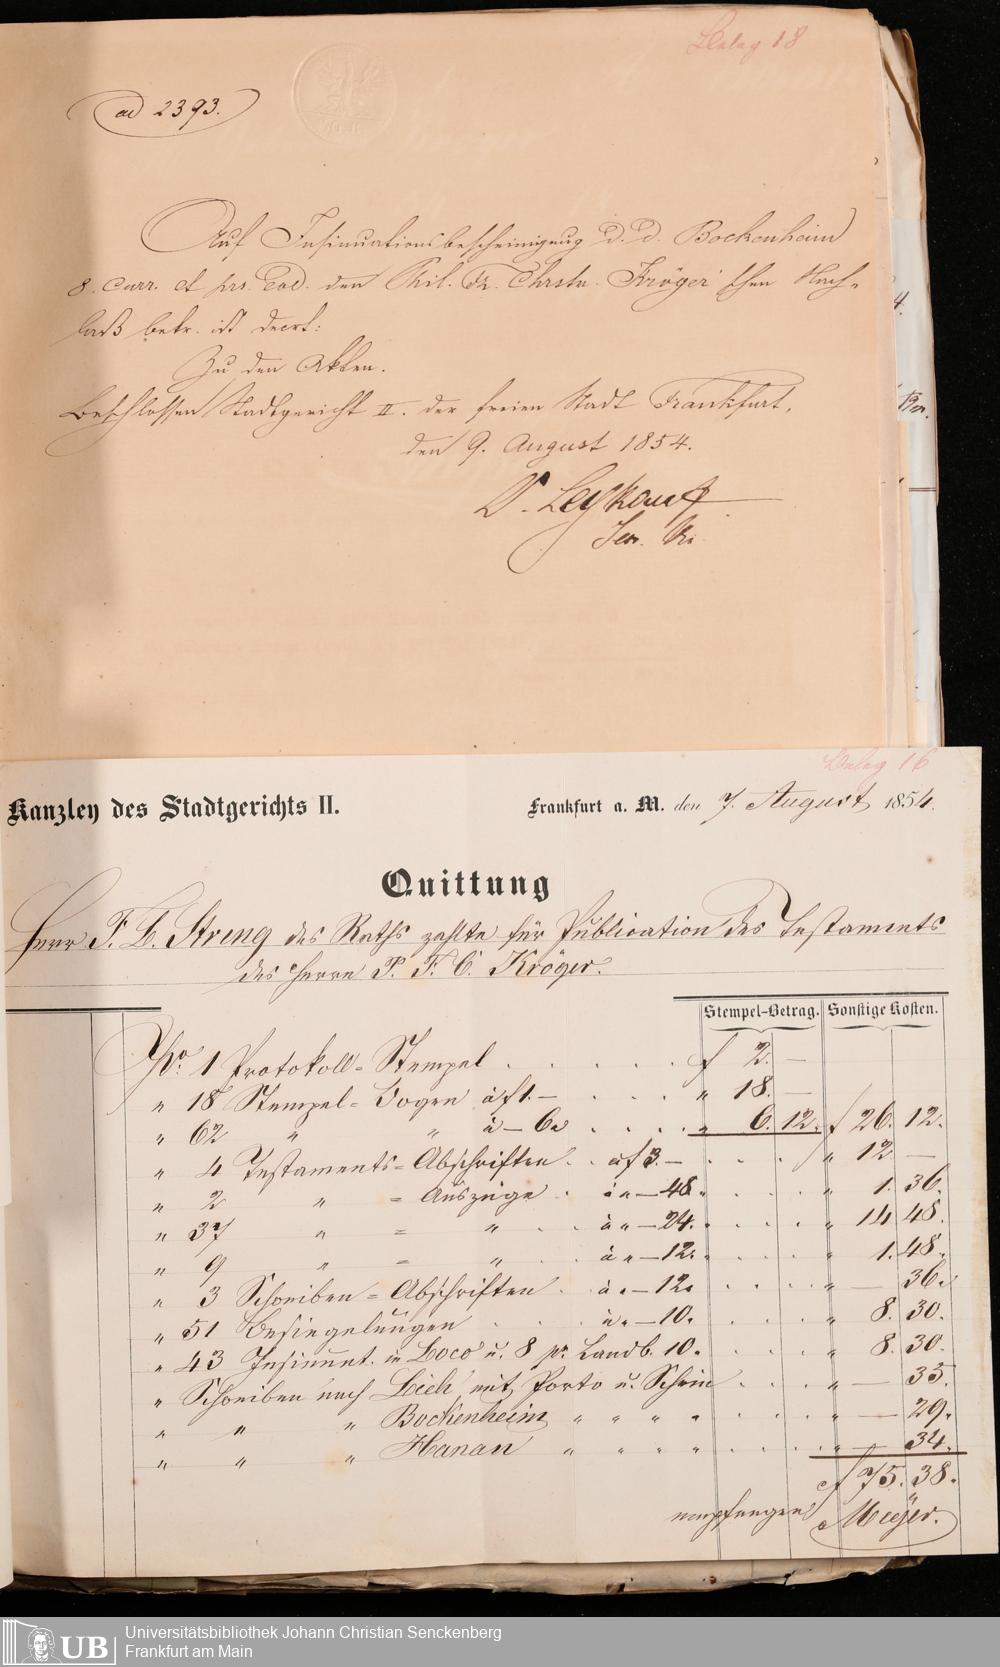 Belag 18
ad 2393.
Auf Insinuationsbescheinigung d. d. Bockenheim
8. curr. et prs. eod. den Phil. Fr. Chrstn. Kröger'schen Nach-
laß betr. ist decrt:
Zu den Akten.
Beschlossen Stadtgericht II. der freien Stadt Frankfurt,
den 9. August 1854.
Belag 16
Kanzley des Stadtgerichts II. Frankfurt a. M. den 7. August 1854.
Quittung
Herr F. L. Streng des Raths zahlte für Publication des Testaments
des Herrn P. F. C. Kröger.
Stempel-Betrag. Sonstige Kosten.
No. 1 Protokoll-Stempel f 2. —
" 18 Stempel-Bogen à f 1. — " 18. —
" 62 " " à — 6. " 6. 12. f 26. 12.
" 4 Testaments-Abschriften à f 3. — " 12 —
" 2 " = Auszüge à " — 48. " 1. 36.
" 37 " = " à " — 24. " 14 48.
" 9 " = " à " — 12. " 1. 48.
" 3 Schreiben-Abschriften à " — 12. " — 36.
" 51 Besiegelungen à " — 10. " 8. 30.
" 43 Insinuat. in Loco u. 8 pr. Landb. 10. " 8. 30.
" Schreiben nach Lich mit Porto u. Schein " — 33.
" " " Bockenheim " " " " " — 29.
" " " Hanau " " " " " — 34.
f 75. 38.
empfangen Meyer.
UB
Universitätsbibliothek Johann Christian Senckenberg
Frankfurt am Main